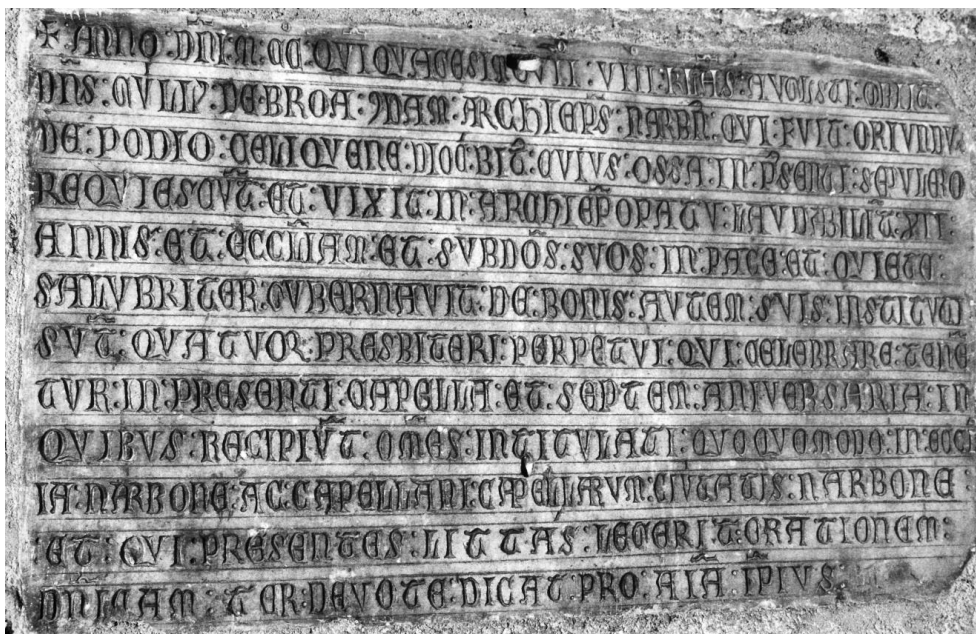 ✠ ANNO : DNI : M : CC : QUIQUAGESIMO VII : VIII : KLAS : AUGUSTI : OBIIT :
DNS : GUILLS : DE : BROA : : ARCHIEPS : NARBN : QUI : FUIT : ORIUNDU
DE : PODIO : CELIQUENE : DIOC : BIT : CUIUS : OSSA : IN : PSENTI : SEPULCRO
REQUIESCUT : ET : VIXIT : IN : ARCHIEPOPATU : LAUDABILIT : XII :
ANNIS : ET : ECCLIAM : ET : SUBDOS : SUOS : IN : PACE : ET : QUIETE :
SALUBRITER : GUBERNAVIT : DE : BONIS : AUTEM : SUIS : INSTITUTI
SUT : QUATUOR : PRESBITERI : PERPETUI : QUI : CELEBRARE : TENE
TUR : IN : PRESENTI : CAPELLA : ET : SEPTEM : ANIVERSARIA : IN
QUIBUS : RECIPIUT : OMES : INTITULATI : QUOQUOMODO : IN : ECCL
IA : NARBONE : AC : CAPELLANI : CAPELLARUM : CIUTATIS : NARBONE
ET : QUI : PRESENTES : LITTAS : LEGERIT : ORATIONEM :
DNICAM : TER : DEVOTE : DICAT : PRO : AIA : IPIUS :